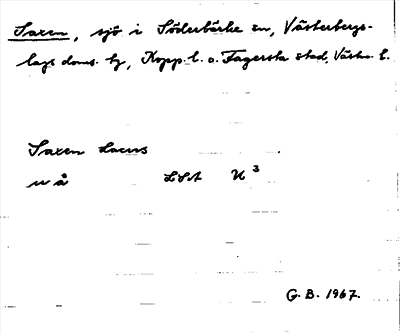 Saxen, sjö i Söderbärke sn, Västerbergs-
lags doms. hg, Kopp. l. o. Fagersta stad, Västm. l.
Saxen Lacus
u å LSA U 3
G. B. 1967.